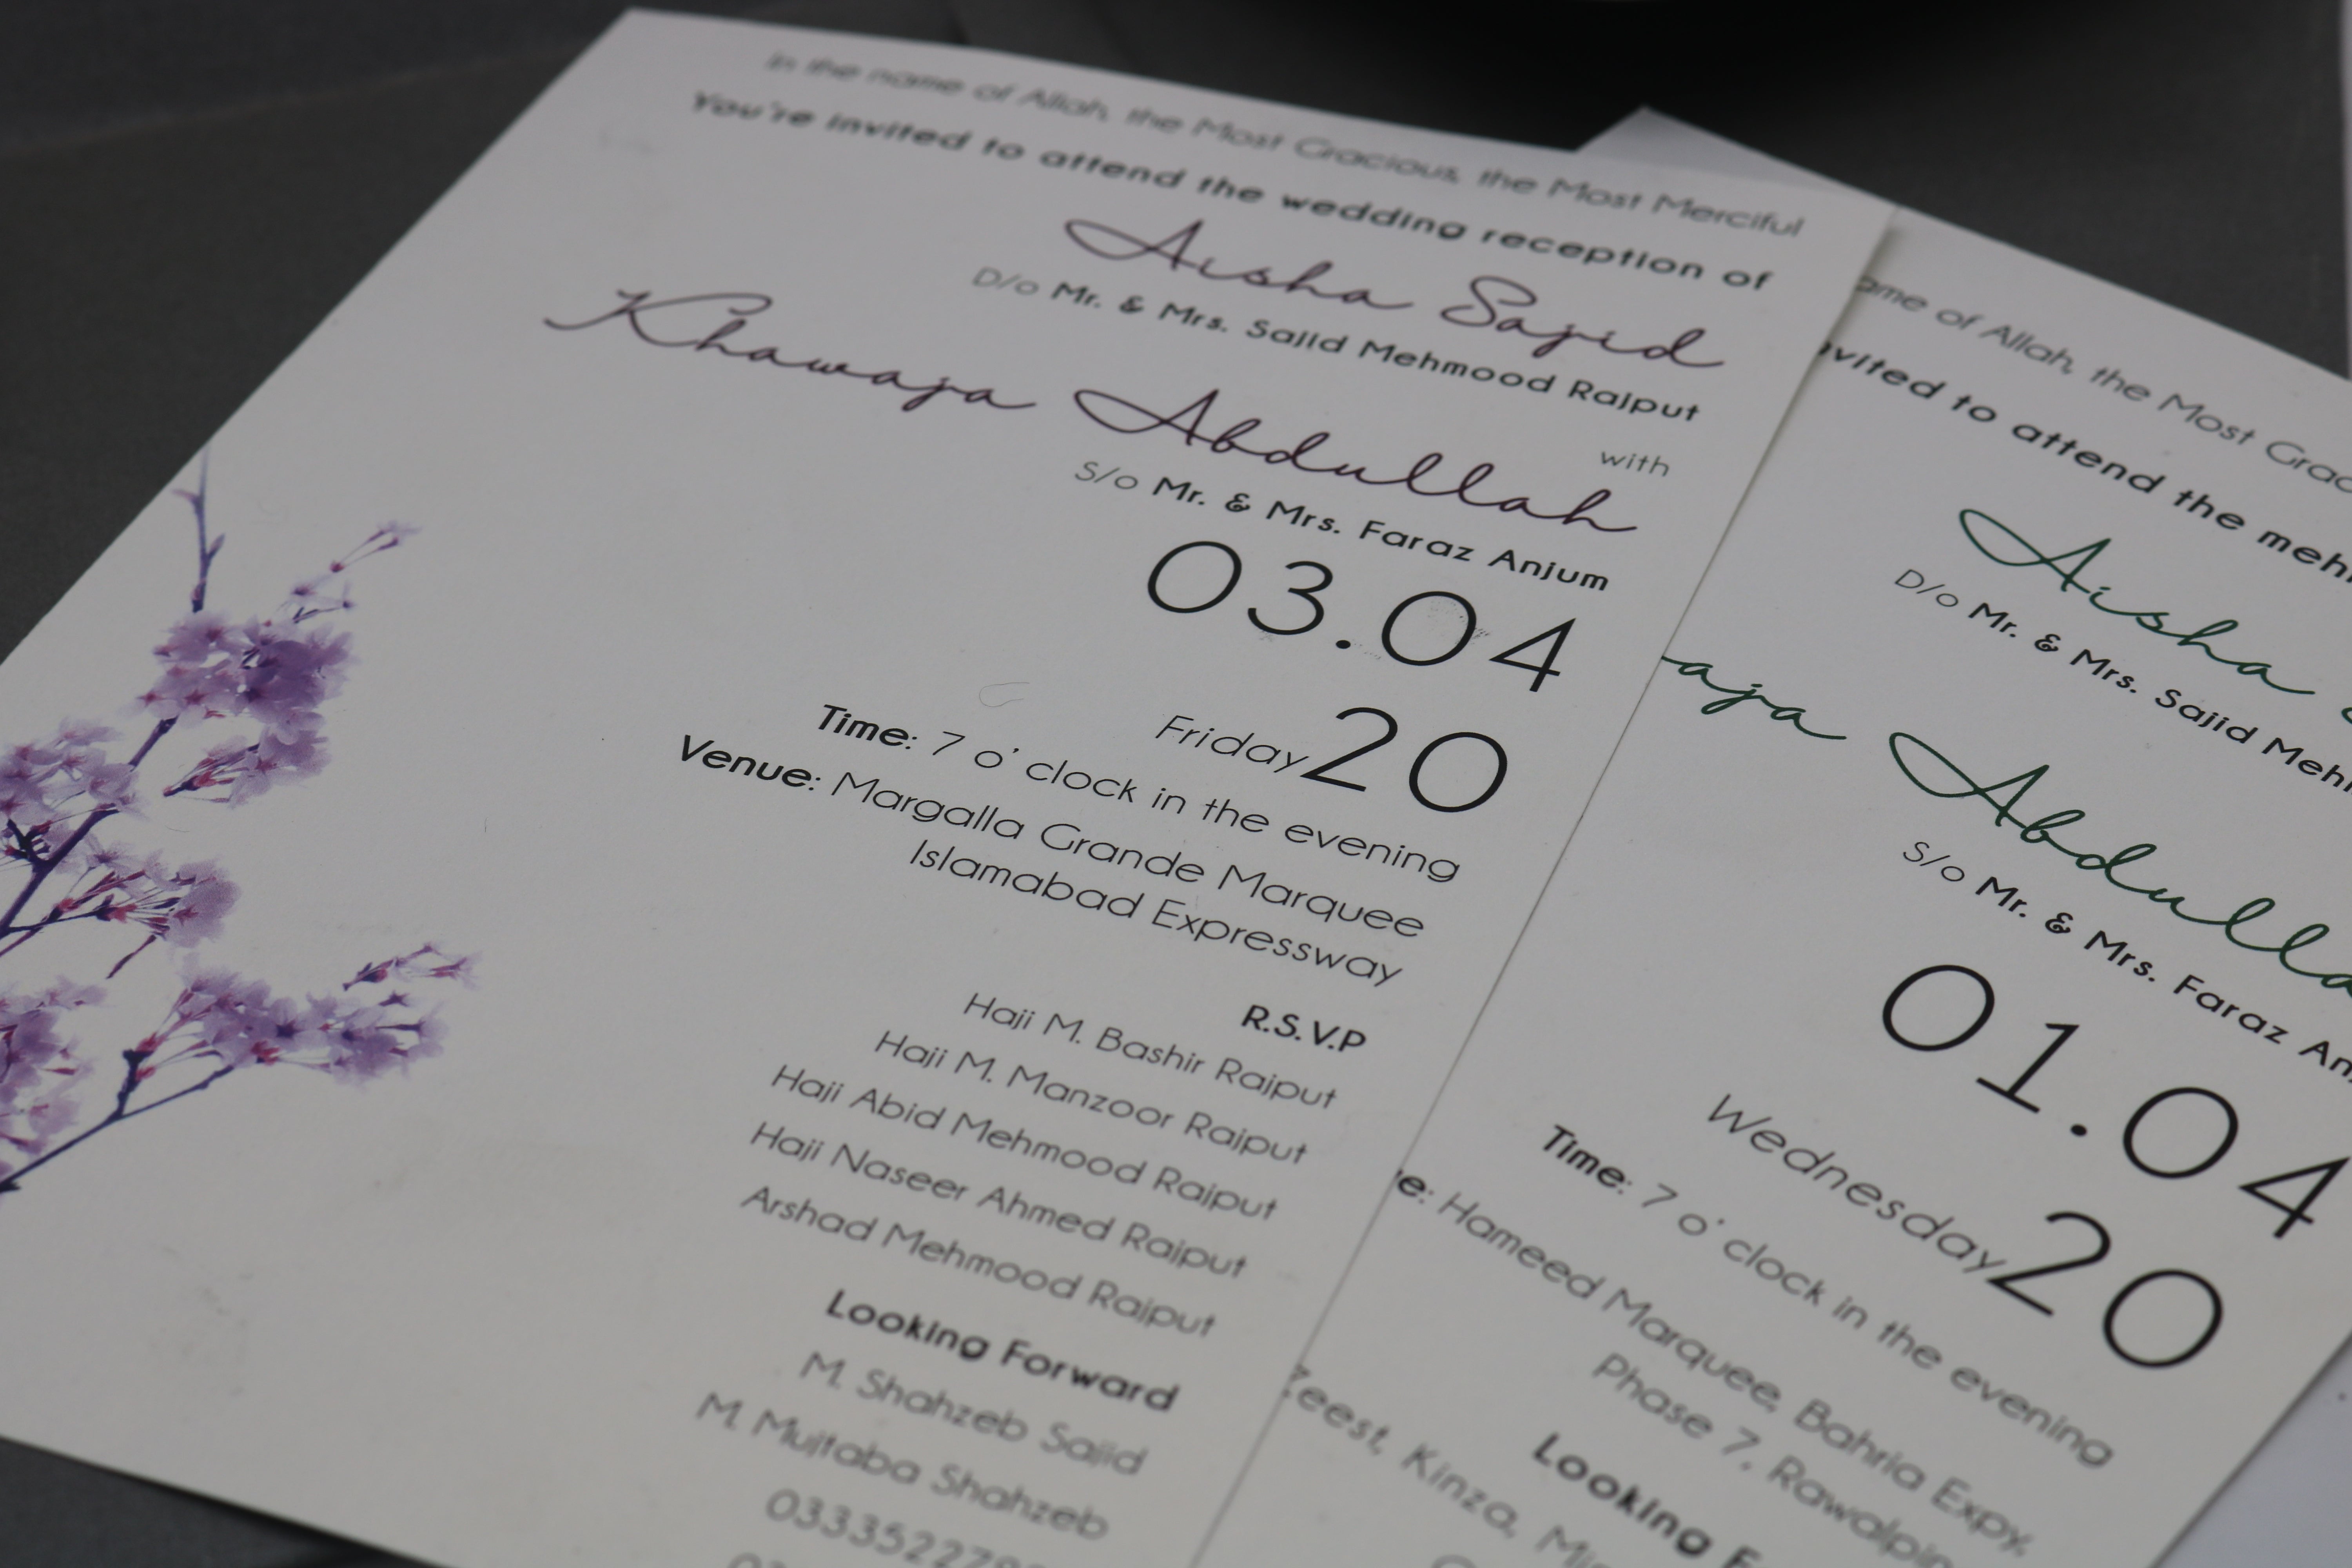 In the name of Allah, the Most Gracious, the Most Merciful
You're invited to attend the wedding reception of
Aisha Sajid
D/o Mr. & Mrs. Sajid Mehmood Rajput
with
Khawaja Abdullah
S/o Mr. & Mrs. Faraz Anjum
03.04
Friday 20
Time: 7 o' clock in the evening
Venue: Margalla Grande Marquee
Islamabad Expressway
R.S.V.P
Haji M. Bashir Rajput
Haji M. Manzoor Rajput
Haji Abid Mehmood Rajput
Haji Naseer Ahmed Rajput
Arshad Mehmood Rajput
Looking Forward
M. Shahzeb Sajid
M. Mujtaba Shahzeb
of Allah, the Most
to attend the
Aisha
D/o Mr. & Mrs. Sajid
Abdulla
S/o Mr. & Mrs. Faraz
01.04
Wednesday 20
Time: 7 o' clock in the evening
Hameed Marquee, Bahria Expy,
Phase 7, Rawalpin
Looking F
Kinza,